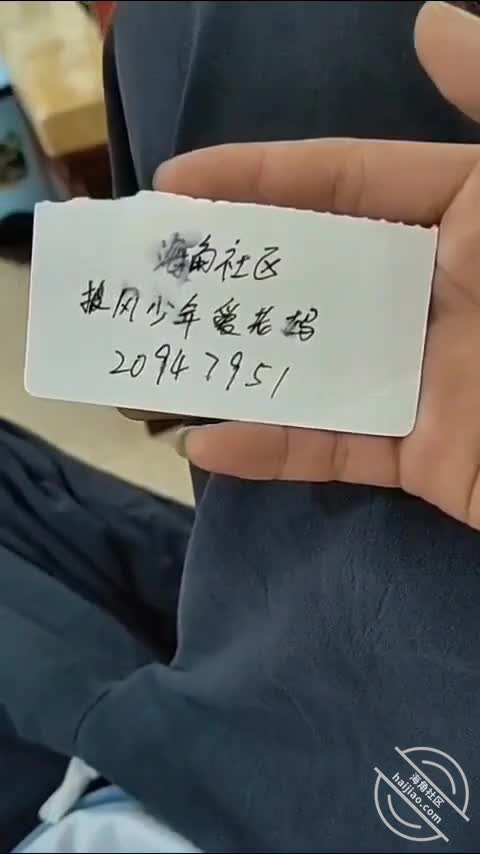 海角社区
披风少年爱老妈
20947951
海角社区
haijiao.com